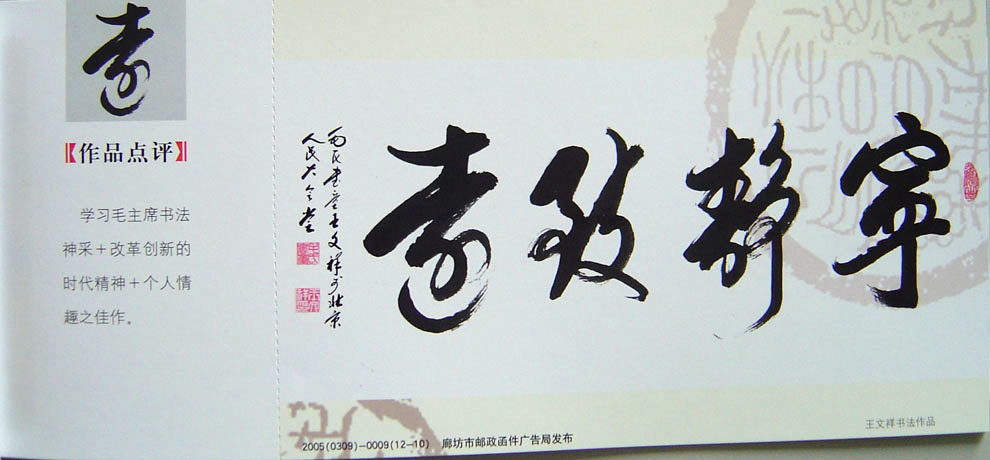 远
【作品点评】
学习毛主席书法
神采+改革创新的
时代精神+个人情
趣之佳作。
宁静致远
王文祥于北京
人民大会堂
2005(0309)—0009(12—10) 廊坊市邮政函件广告局发布
王文祥书法作品